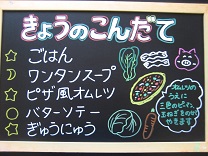 きょうのこんだて
ごはん
ワンタンスープ
ピザ風オムレツ
バターソテー
ぎゅうにゅう
オムレツの
うえに
三色のピーマン、
玉ねぎをのせて
やきます♪